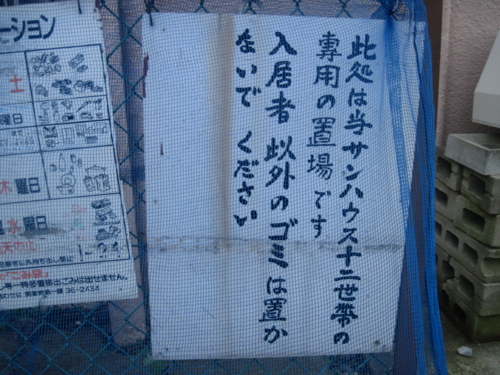 此処は当サンハウス十二世帯の
専用の置場です
入居者以外のゴミは置か
ないで ください
ーション
土
曜日
木曜日
水曜日
36-2434